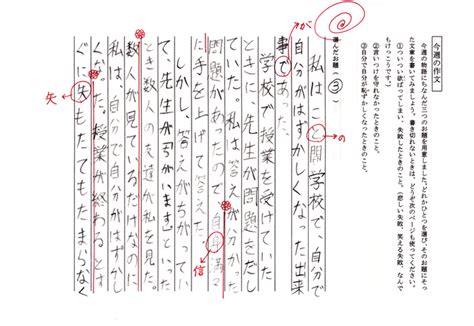 今週の作文
今週の物語にちなんだ三つのお題を用意しました。どれかひとつを選び、そのお題にそった文章を書いてみましょう。書き切れないときは、どうぞ次のページも使ってください。
①ついつい欲ばってしまい、失敗したときのこと。(悲しい失敗、笑える失敗、なんでもけっこうです。)
②言いつけを守れなかったときのこと。
③自分で自分が恥ずかしくなったときのこと。
選んだお題(③)
私はこと間学校で、自分で
自分がはずかしくなった出来
事であった、
学校で授業を受けていた
ときに、先生が問題をだし
ていた。私は
問題があったので自身満々
に手を上げて答えた。
しかし、答えがちがってい
て、先生が「ちがいます」といった
とき数人の友達が私を見た。
数人が見ているだけなのに
私は、自分で自分がはずかし
くなった。授業が終わるとす
ぐに失もたてもたまらなく
が
の
信
矢